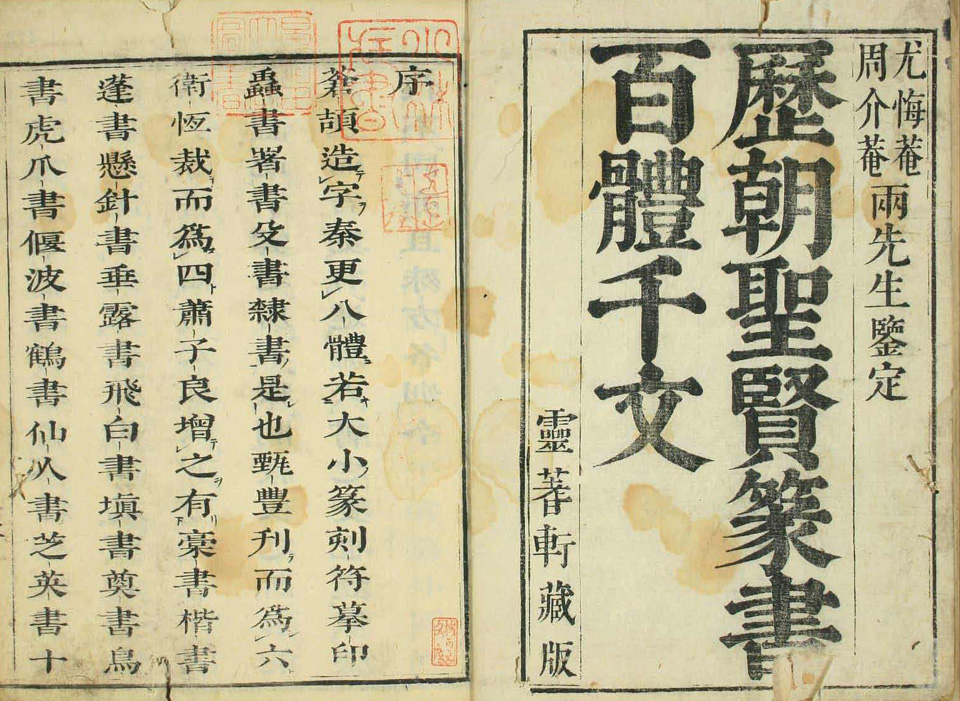 尤悔菴
周介菴
兩先生鑒定
歷朝聖賢篆書
百體千文
靈蓍軒藏版
序
蒼頡造字秦更八體若大小篆刻符摹印
蟲書署書殳書隸書是也甄豐刋而爲六
衛恆裁而爲四蕭子良增之有藁書楷書
蓬書懸針書垂露書飛白書塡書奠書鳥
書虎爪書偃波書鶴書仙人書芝英書十